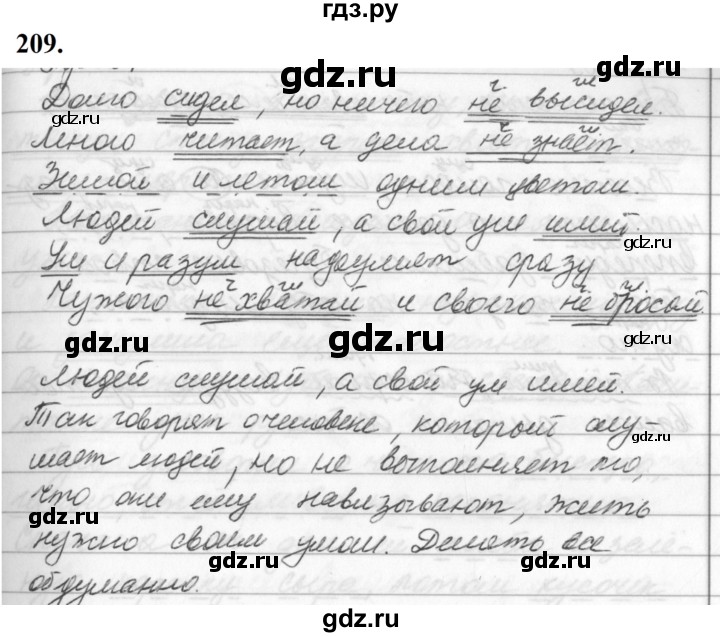 гдз.ру
209.
gdz.ru gdz.ru gdz.ru
Долго сидел, но ничего не высидел.
Много читает, а дела не знает.
Зимой и летом одним цветом.
Людей слушай, а свой ум имей.
Ум и разум надоумлет сразу
Чужого не хватай и своего не бросай.
gdz.ru gdz.ru gdz.ru
Людей слушай, а свой ум имей.
Так говорят о человеке, который слу-
шает людей, но не выполняет то,
что они ему навязывают, жить
нужно своим умом. Делать все
обдуманно.
gdz.ru